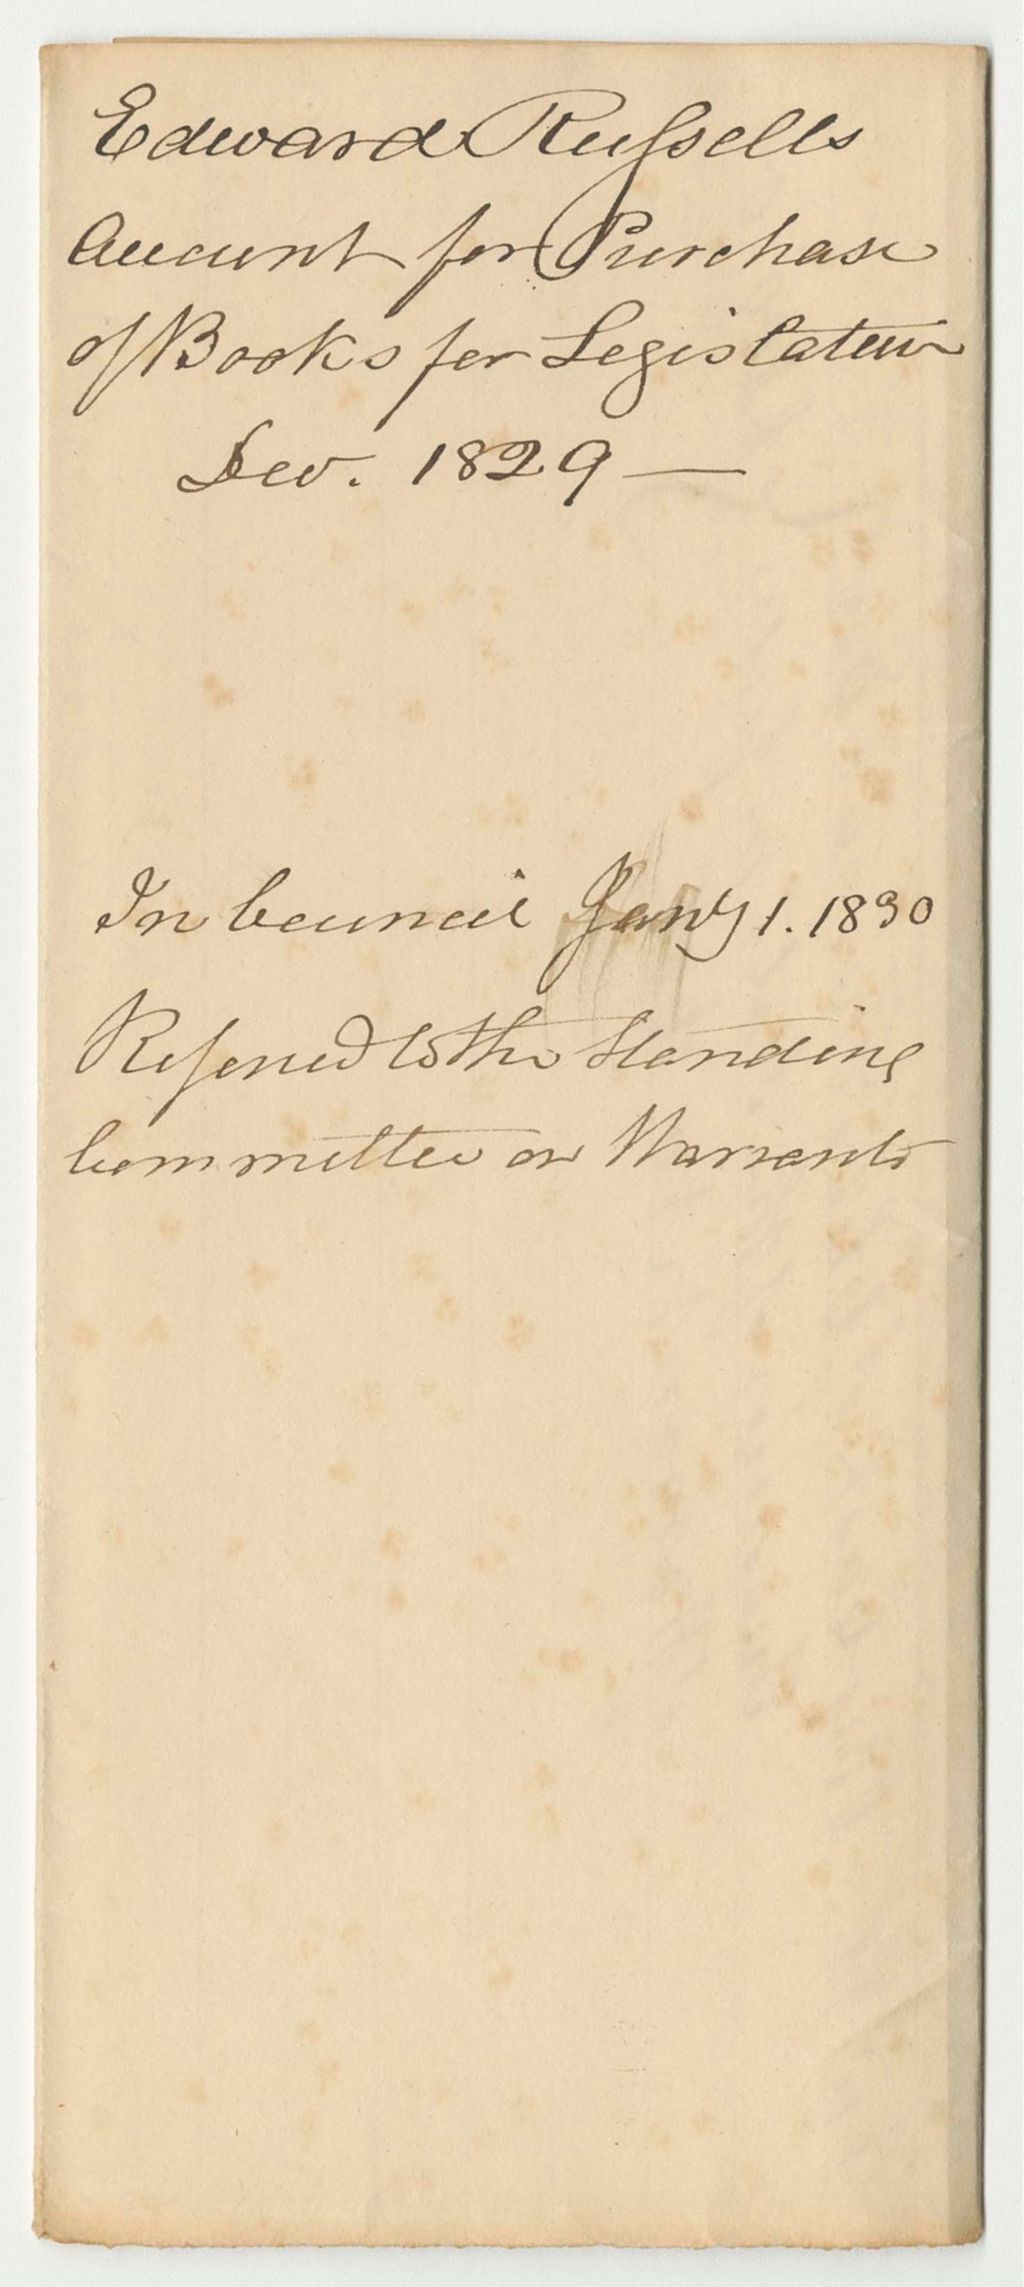 Edward Russells
Account for Purchase
of Books for Legislature
Dec. 1829 —
In Council Jany 1. 1830
Referred to the Standing
Committee on Warrants